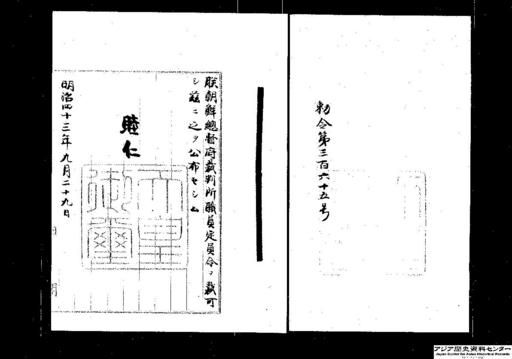 勅令第三百六十五号
朕朝鮮總督府裁判所職員定員令ヲ裁可
シ茲ニ之ヲ公布セシム
睦仁
天皇御璽
明治四十三年九月二十九日
アジア歴史資料センター
Japan Center for Asian Historical Records